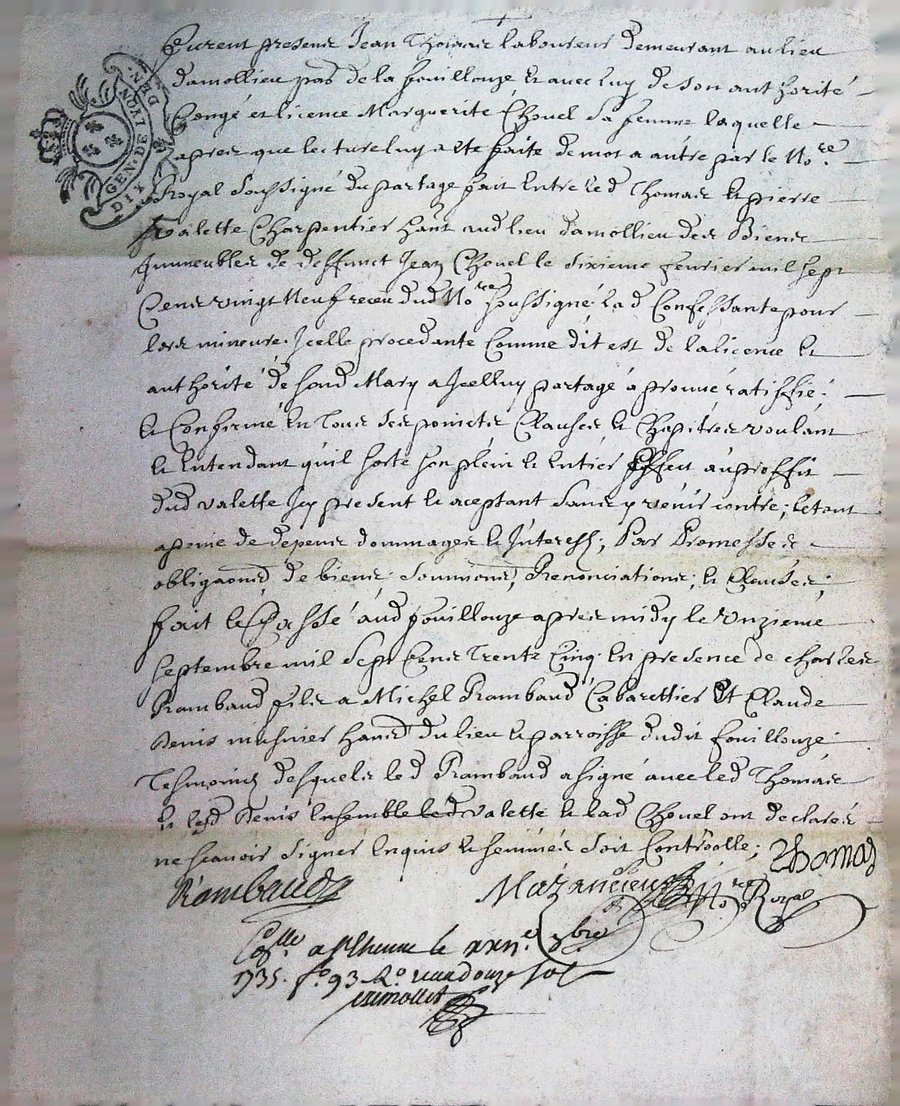 GEN. DE LYON
DIX DEN.
Furent presens Jean Thomas laboureur demeurant au lieu
damollieu pas de la fouillouze et avec luy de son authorité
Congé et licence Marguerite Chovel sa femme laquelle
apres que lecture luy a ete faite de mot a autre par le No.re
Royal soussigné du partage fait entre led Thomas et pierre
valette Charpentier hant aud lieu damollieu des Biens
Immeubles de deffunct Jean Chovel le sixieme fevrier mil sept
Cens vingt neuf receu dud No.re soussigné; lad Confessante pour
lors mineure. Icelle procedante Comme dit est de la licence et
authorité de sond Mary a Icelluy partagé aprouvé ratiffié;
et Confirmé en Tous ses poincts Clauses et Chapitres voulant
et Entendant quil sorte son plein et Entier Effect au proffit
dud valette Icy present et aceptant sans y venir contre; letout
a peine de depens dommages et Interess; Par Promesses
obligaons de biens. soumions, Renonciations; et Clauses;
fait et Passé aud fouillouze apres midy le onzieme
Septembre mil Sept Cens Trente Cinq. en presence de charles
Rambaud fils a Michel Rambaud Cabarettier Et Claude
Denis musnier hans du lieu et parroisse dudit fouillouze;
Tesmoins desquels led Rambaud a signé avec led Thomas
et led Denis Ensemble led valette et lad Chovel ont declarés
ne scavoir signer Enquis et sommés soit Controolle; Thomas
Rambaud Mazancieux No.re Royal
Coll.e a st Etienne le xxii.e 7bre
1735. f.o 93 R.o receu douze sols